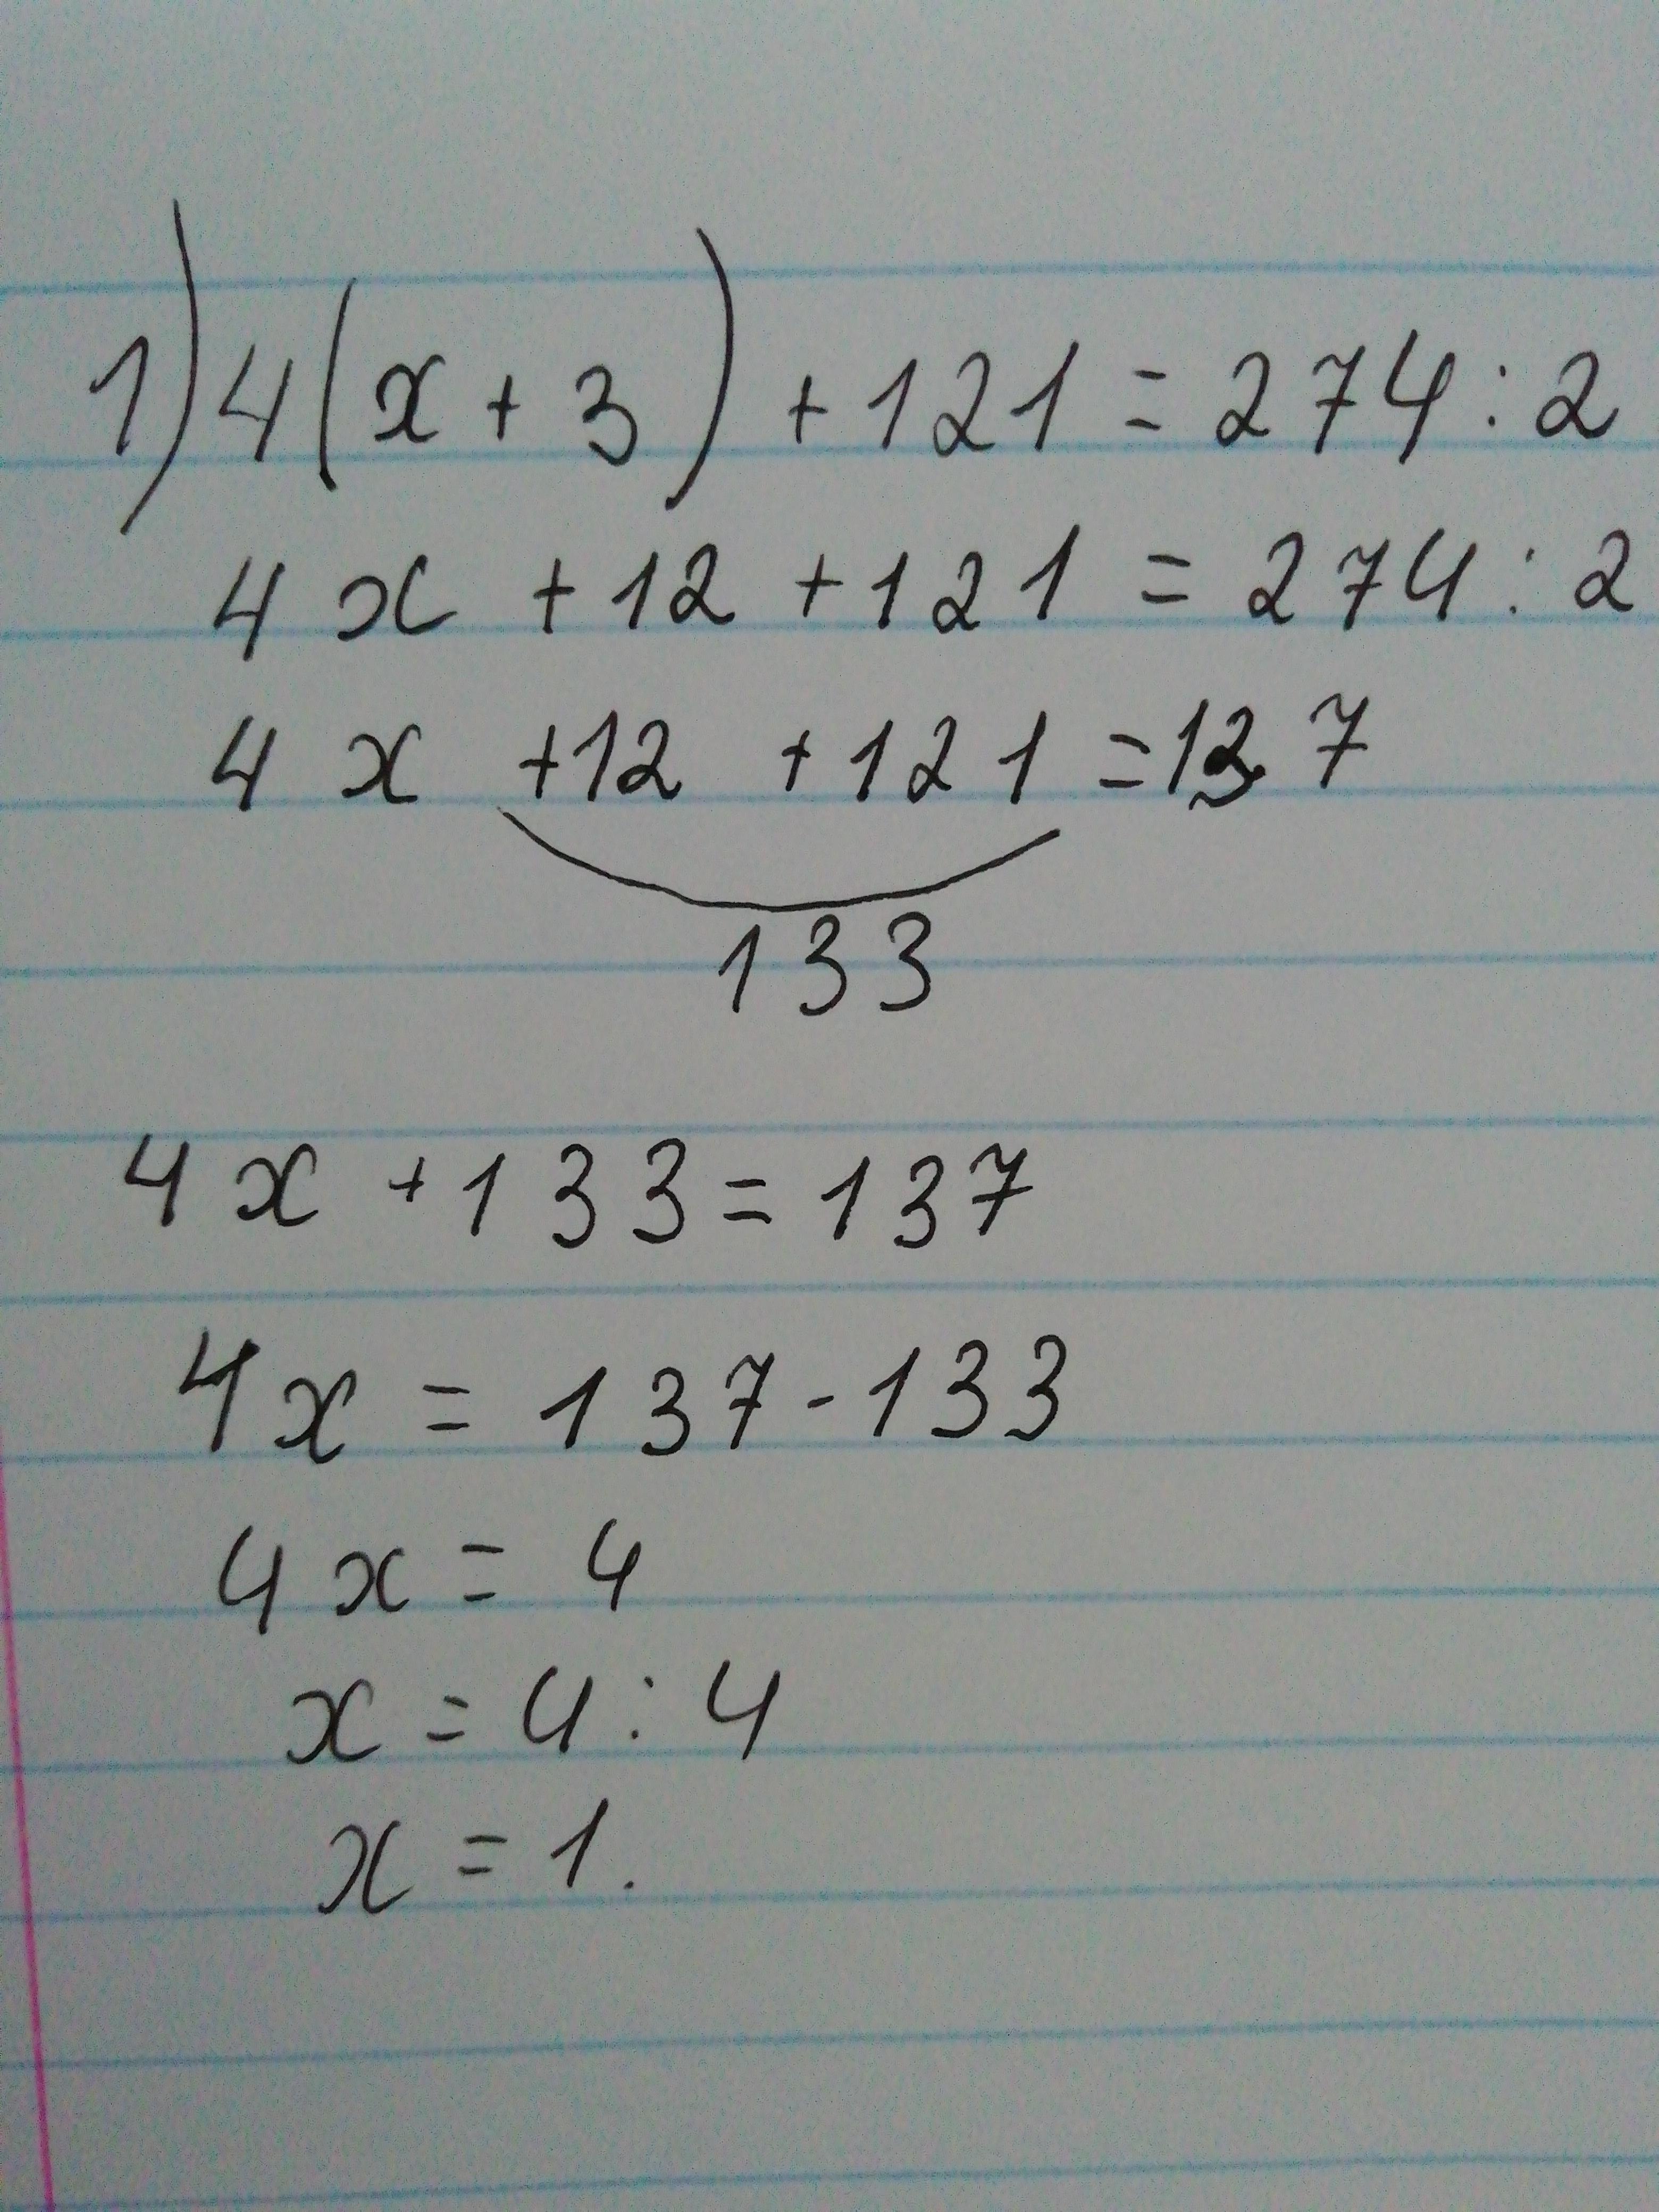 1) 4(x + 3) + 121 = 274 : 2
4x + 12 + 121 = 274 : 2
4x + 12 + 121 = 137
133
4x + 133 = 137
4x = 137 - 133
4x = 4
x = 4 : 4
x = 1.